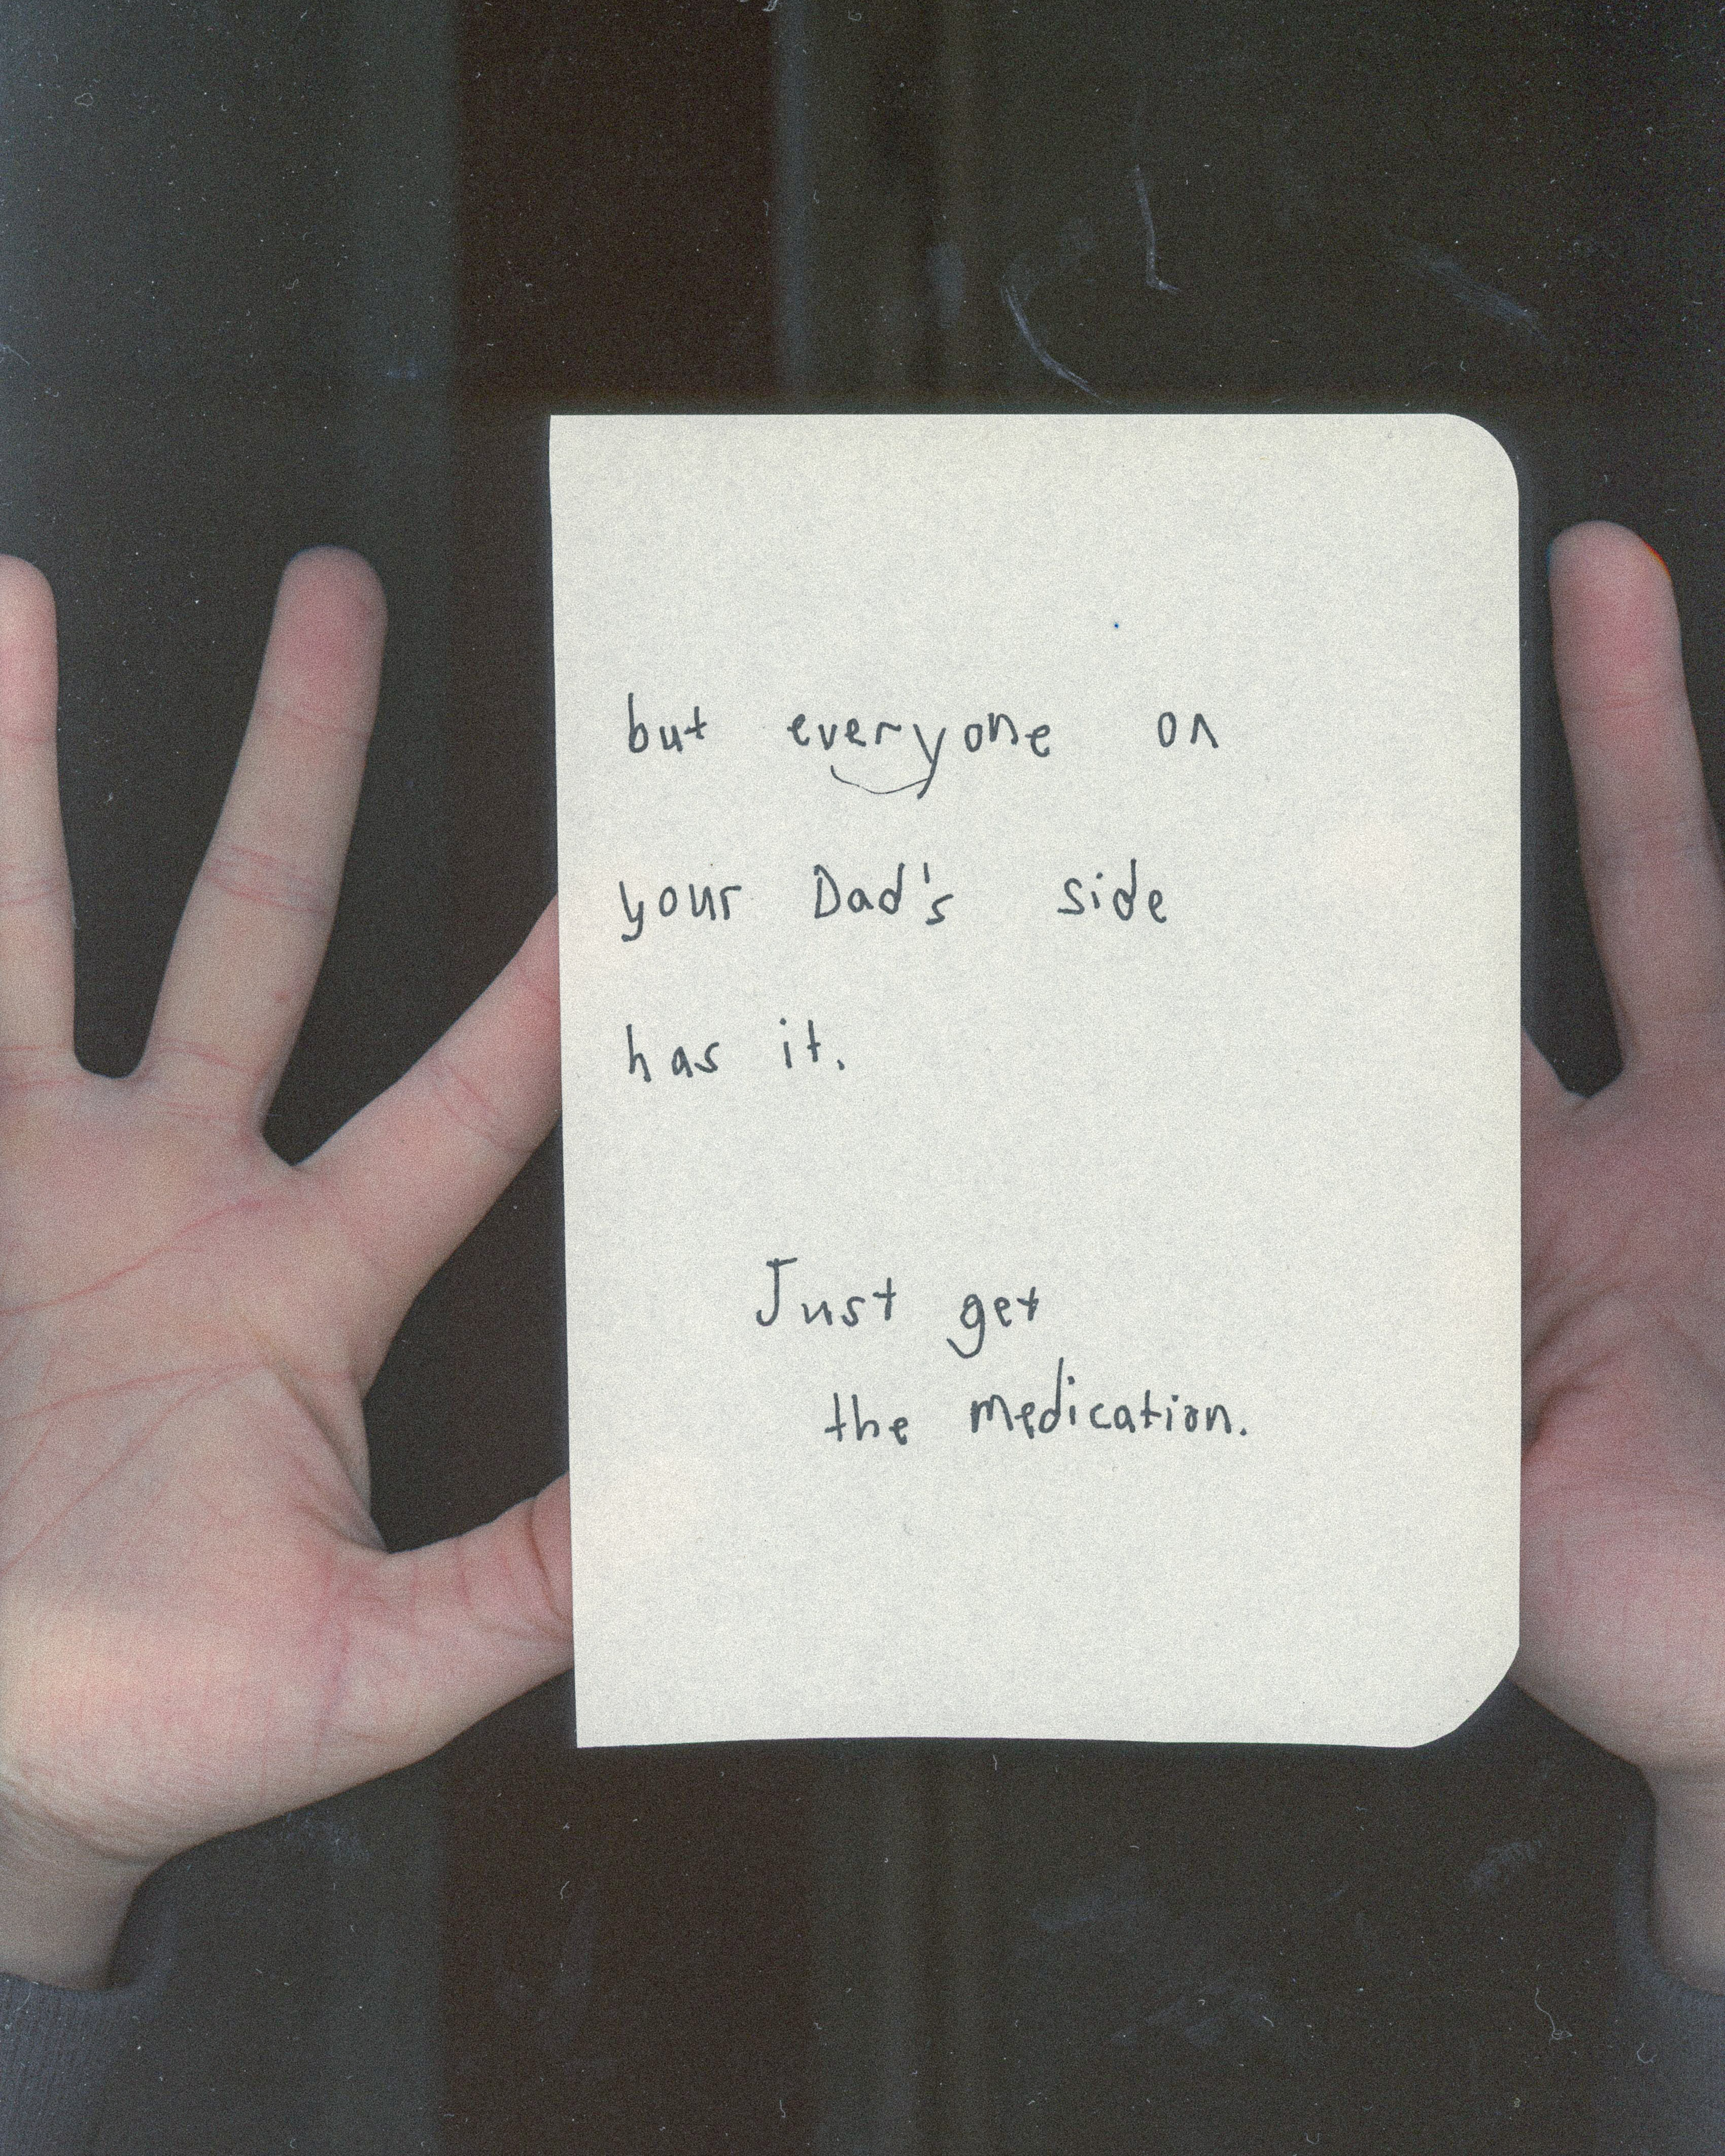 but everyone on
your Dad's side
has it.
Just get
the medication.